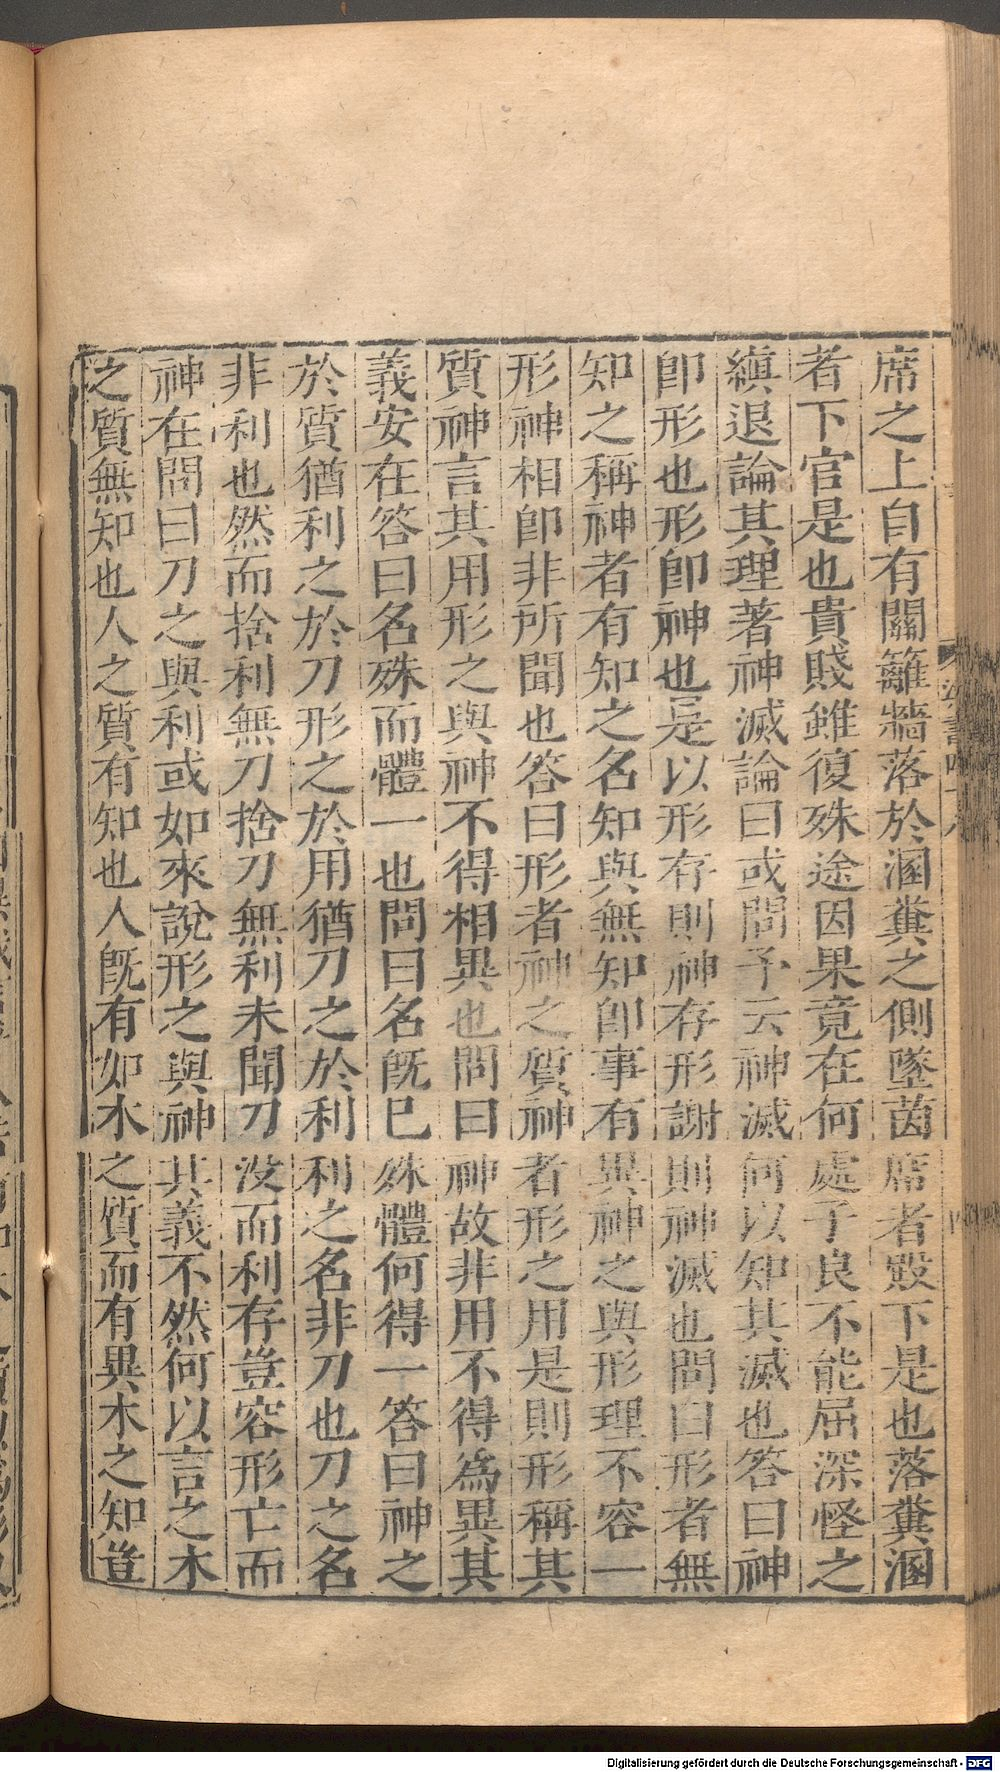 席之上自有關籬牆落於溷糞之側墜茵席者殿下是也落糞溷
者下官是也貴賤雖復殊途因果竟在何處子良不能屈深怪之
縝退論其理著神滅論曰或問予云神滅何以知其滅也答曰神
卽形也形卽神也是以形存則神存形謝則神滅也問曰形者無
知之稱神者有知之名知與無知卽事有異神之與形理不容一
形神相卽非所聞也答曰形者神之質神者形之用是則形稱其
質神言其用形之與神不得相異也問曰神故非用不得為異其
義安在答曰名殊而體一也問曰名旣已殊體何得一答曰神之
於質猶利之於刀形之於用猶刀之於利利之名非刀也刀之名
非利也然而捨利無刀捨刀無利未聞刀沒而利存豈容形亡而
神在問曰刀之與利或如來說形之與神其義不然何以言之木
之質無知也人之質有知也人旣有如木之質而有異木之知豈
Digitalisierung gefördert durch die Deutsche Forschungsgemeinschaft - DFG